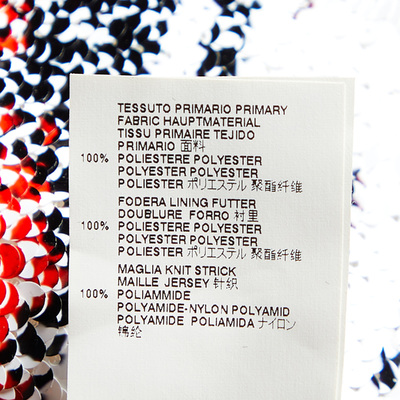 TESSUTO PRIMARIO PRIMARY
FABRIC HAUPTMATERIAL
TISSU PRIMAIRE TEJIDO
PRIMARIO 面料
100% POLIESTERE POLYESTER
POLYESTER POLYESTER
POLIESTER ポリエステル 聚酯纤维
FODERA LINING FUTTER
DOUBLURE FORRO 衬里
100% POLIESTERE POLYESTER
POLYESTER POLYESTER
POLIESTER ポリエステル 聚酯纤维
MAGLIA KNIT STRICK
MAILLE JERSEY 针织
100% POLIAMMIDE
POLYAMIDE-NYLON POLYAMID
POLYAMIDE POLIAMIDA ナイロン
锦纶